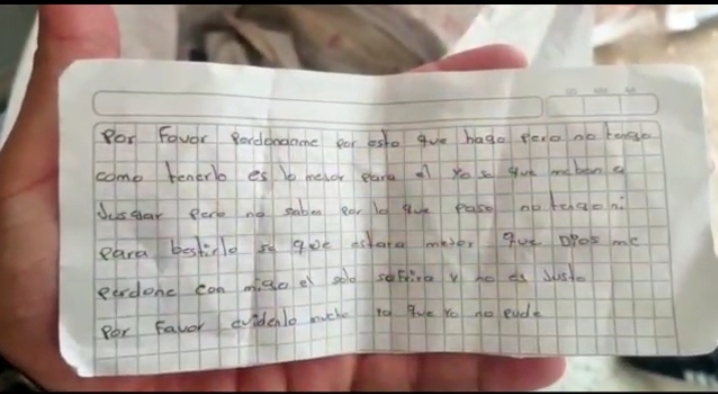 Por Favor Perdonanme por esto que hago pero no tengo
como tenerlo es lo mejor para el Yo se que me ban a
Jusgar pero no saben por lo que paso no tengo ni
para bestirlo se que estara mejor que DIOS me
perdone con migo el solo sofrira y no es Justo
Por Favor cuidenlo mucho ya que Yo no pude